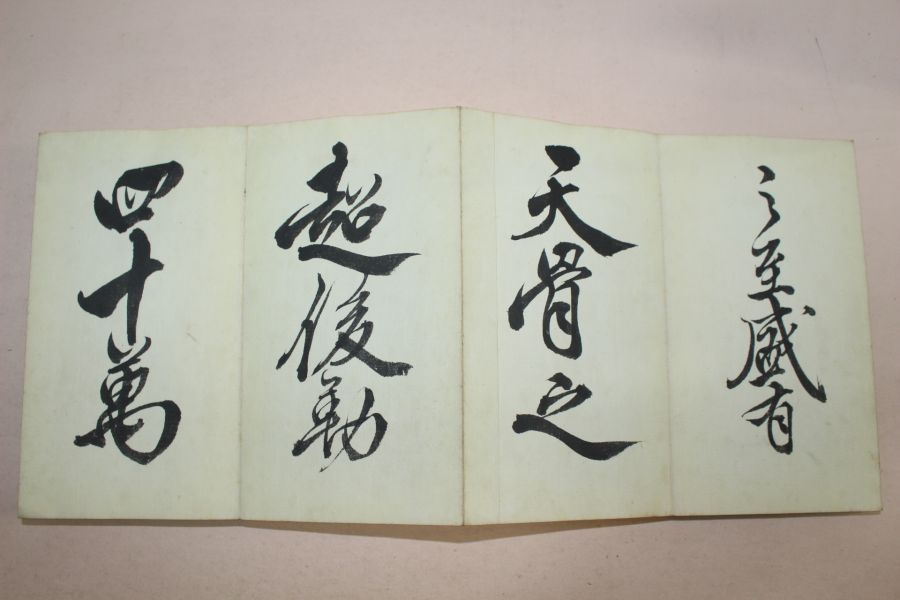 之至盛有
天骨之
超俊勳
四十萬